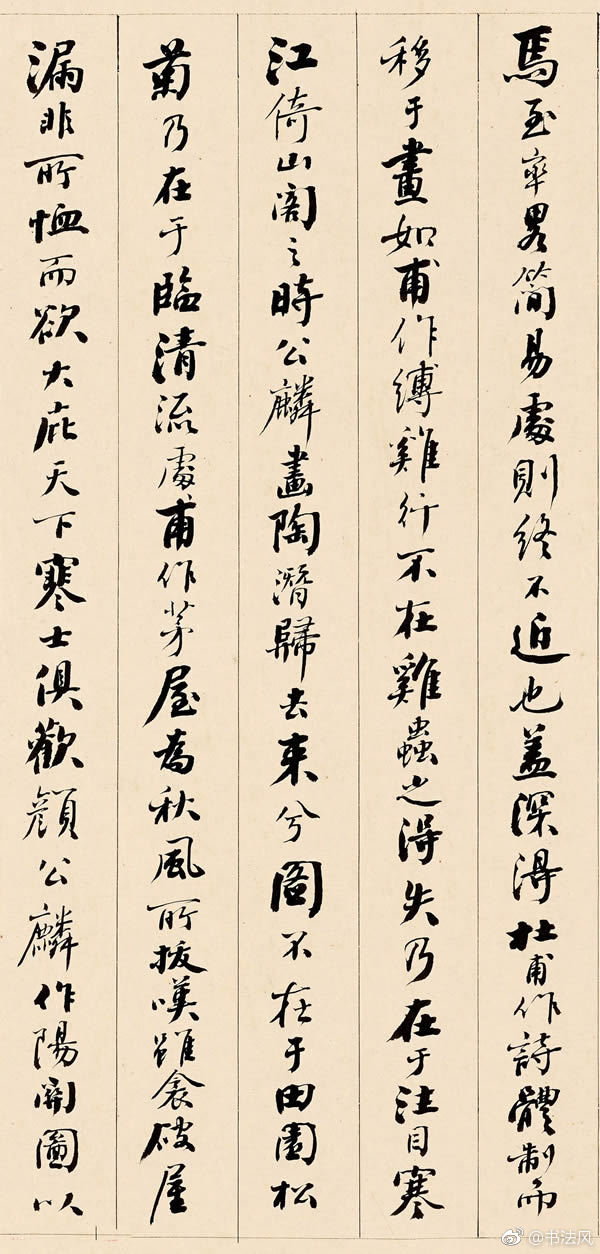 焉至率略簡易處則終不近也蓋深得杜甫作詩體制而
移于畫如甫作縛雞行不在雞蟲之得失乃在于注目寒
江倚山閣之時公麟畫陶潛歸去來兮圖不在于田園松
菊乃在于臨清流處甫作茅屋為秋風所拔嘆雖衾破屋
漏非所恤而欲大庇天下寒士俱歡顏公麟作陽關圖以
@书法风